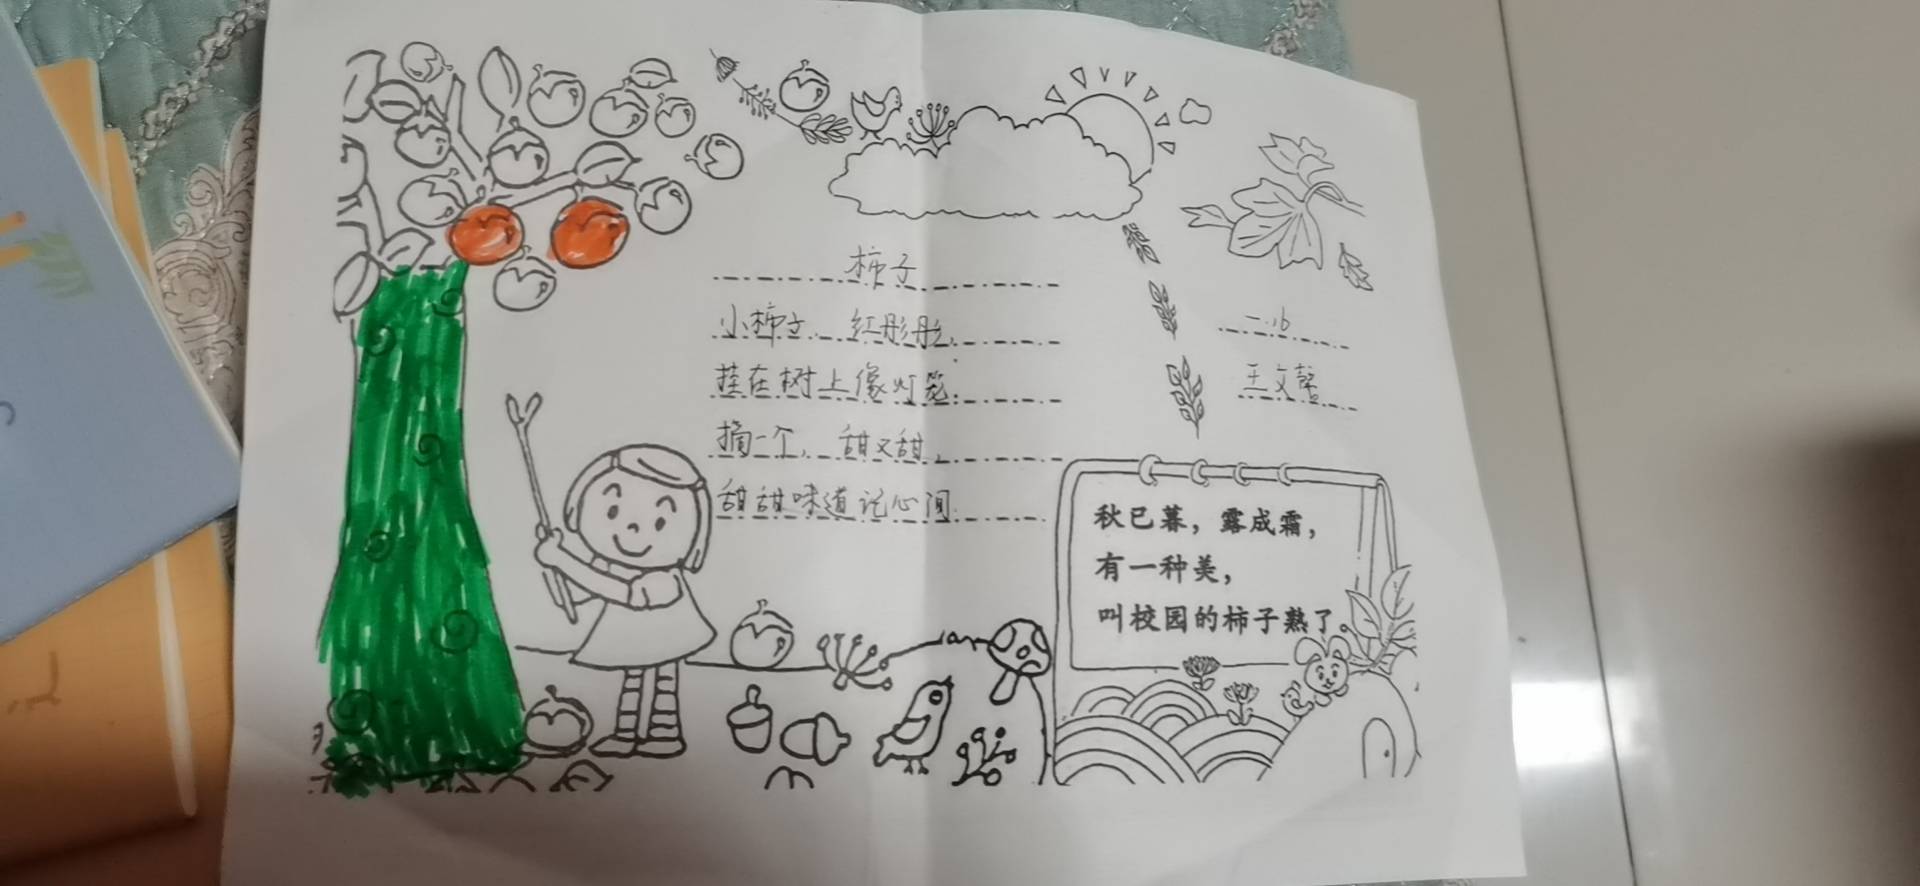 柿子
小柿子,红彤彤,
挂在树上像灯笼.
摘一个,甜又甜,
甜甜味道记心间.
二.16
王文馨
秋已暮，露成霜，
有一种美，
叫校园的柿子熟了。